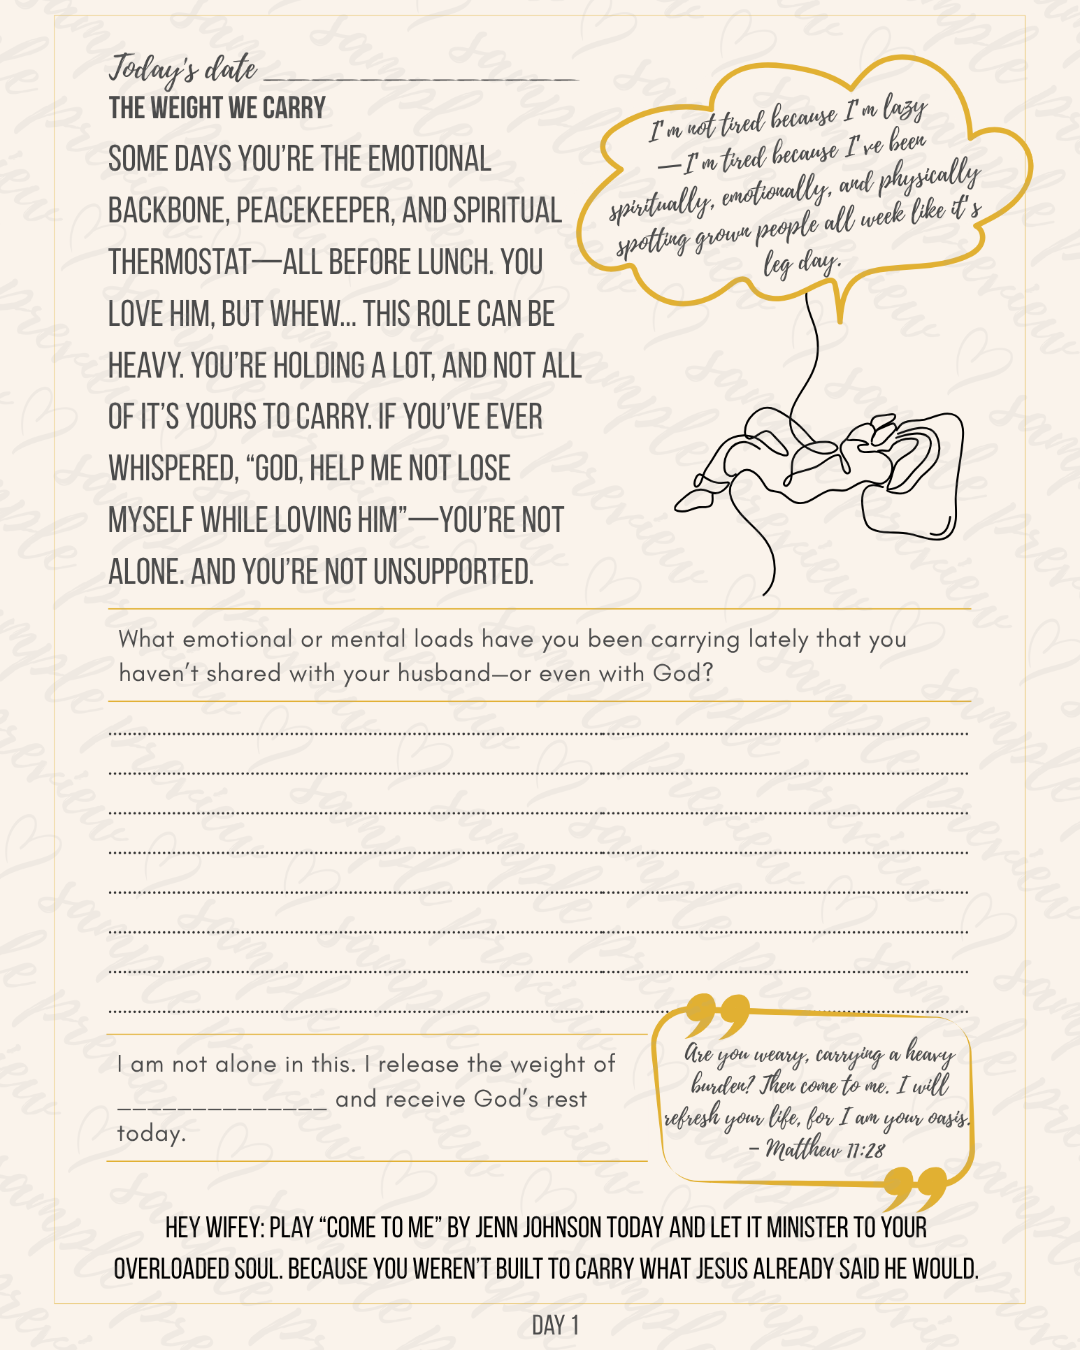 Today's date _ _ _ _ _ _ _ _ _ _ _ _ _
THE WEIGHT WE CARRY
SOME DAYS YOU’RE THE EMOTIONAL
BACKBONE, PEACEKEEPER, AND SPIRITUAL
THERMOSTAT—ALL BEFORE LUNCH. YOU
LOVE HIM, BUT WHEW... THIS ROLE CAN BE
HEAVY. YOU’RE HOLDING A LOT, AND NOT ALL
OF IT’S YOURS TO CARRY. IF YOU’VE EVER
WHISPERED, “GOD, HELP ME NOT LOSE
MYSELF WHILE LOVING HIM”—YOU’RE NOT
ALONE. AND YOU’RE NOT UNSUPPORTED.
I'm not tired because I'm lazy
—I'm tired because I've been
spiritually, emotionally, and physically
spotting grown people all week like it's
leg day.
What emotional or mental loads have you been carrying lately that you
haven’t shared with your husband—or even with God?
I am not alone in this. I release the weight of
______________ and receive God’s rest
today.
Are you weary, carrying a heavy
burden? Then come to me. I will
refresh your life, for I am your oasis.
– Matthew 11:28
HEY WIFEY: PLAY “COME TO ME” BY JENN JOHNSON TODAY AND LET IT MINISTER TO YOUR
OVERLOADED SOUL. BECAUSE YOU WEREN’T BUILT TO CARRY WHAT JESUS ALREADY SAID HE WOULD.
DAY 1
sample preview